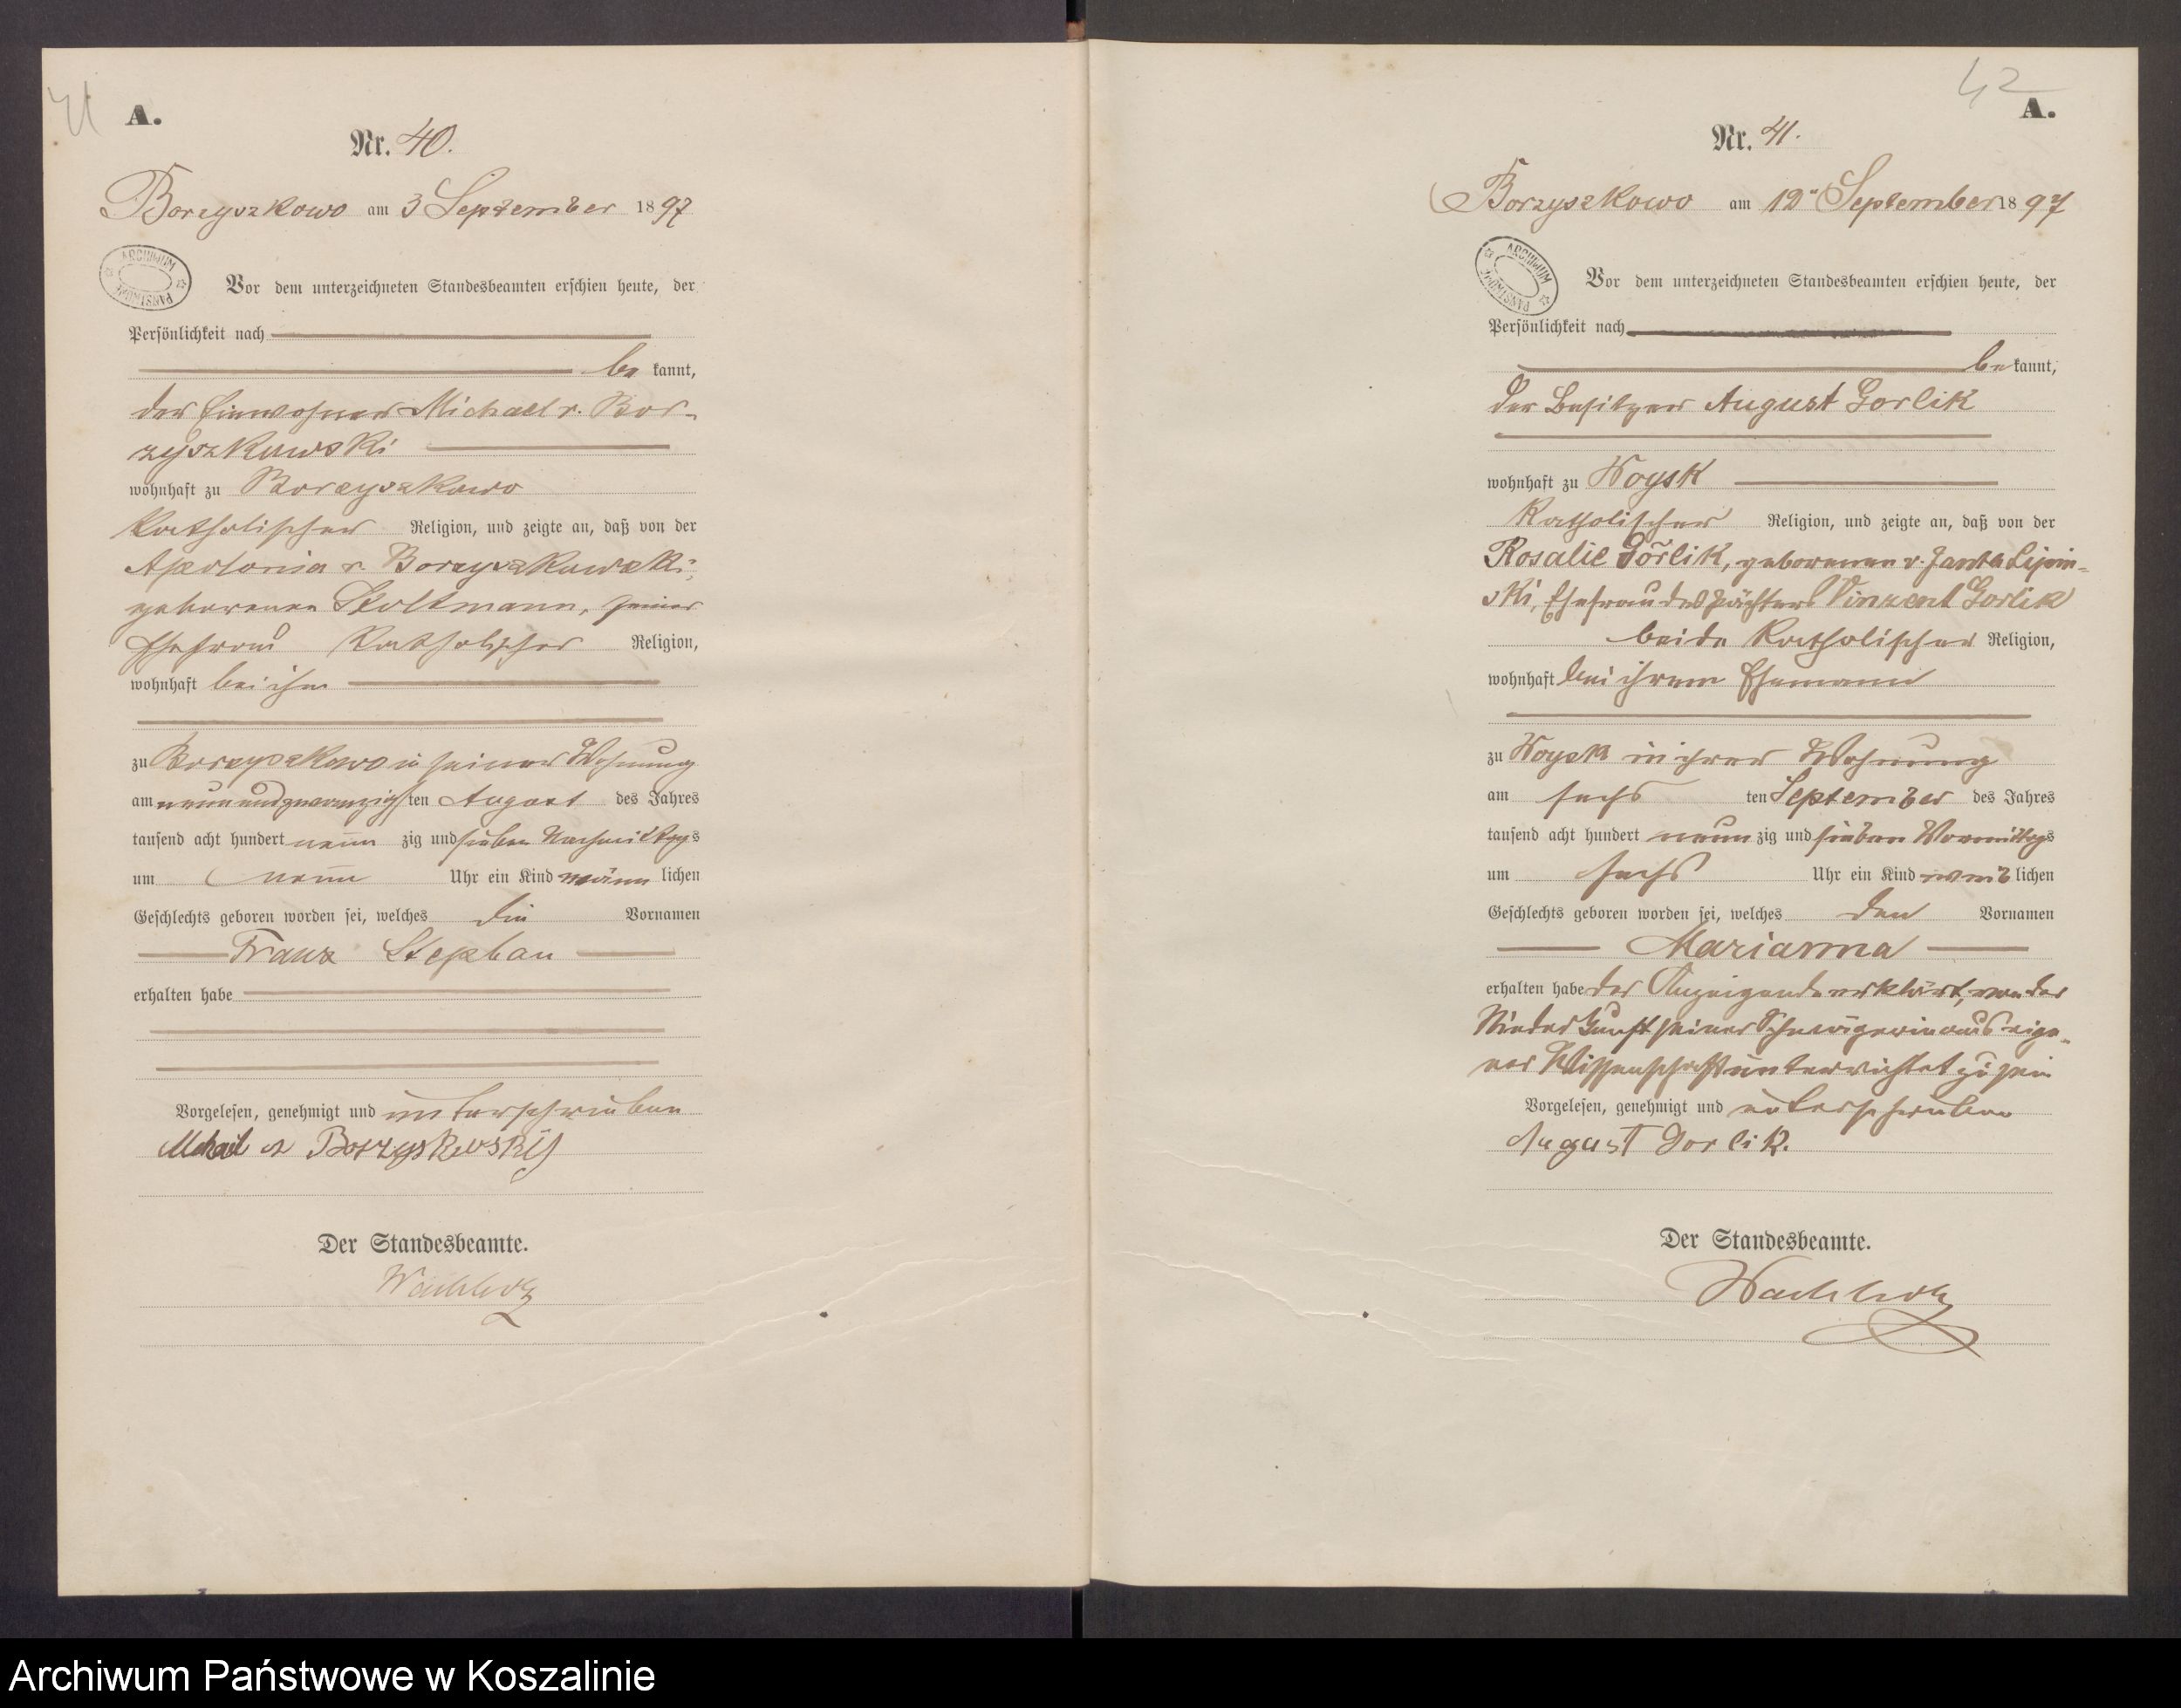 41
A.
Nr. 40.
Borzyszkowo am 3 September 1897
ARCHIWUM PAŃSTWOWE
Vor dem unterzeichneten Standesbeamten erschien heute, der
Persönlichkeit nach
be kannt,
der Einwohner Michael v. Bor-
zyszkowski
wohnhaft zu Borzyszkowo
katholischer Religion, und zeigte an, daß von der
Apolonia v. Borzyszkowski,
geborenen Stoltmann, seiner
Ehefrau katholischer Religion,
wohnhaft bei ihm
zu Borzyszkowo in seiner Wohnung
am neunundzwanzigsten August des Jahres
tausend acht hundert neun zig und sieben Nachmittags
um neun Uhr ein Kind männ lichen
Geschlechts geboren worden sei, welches die Vornamen
Franz Stephan
erhalten habe
Vorgelesen, genehmigt und unterschrieben
Der Standesbeamte.
42
A.
Nr. 41.
Borzyszkowo am September 1897
ARCHIWUM PAŃSTWOWE
Vor dem unterzeichneten Standesbeamten erschien heute, der
Persönlichkeit nach
be kannt,
der Besitzer August Gorlik
wohnhaft zu Woysk
katholischer Religion, und zeigte an, daß von der
Rosalie Görlik, geborenen v. Janta Lipin-
ski, Ehefrau des Pächters Vinzent Gorlik
beide katholischer Religion,
wohnhaft bei ihrem Ehemann
zu Woysk in ihrer Wohnung
am sechs ten September des Jahres
tausend acht hundert neun zig und sieben Vormittags
um sechs Uhr ein Kind weib lichen
Geschlechts geboren worden sei, welches den Vornamen
Marianna
erhalten habe der Anzeigende erklärt, von der
Niederkunft seiner Schwägerin aus eige-
ner Wissenschaft unterrichtet zu sein
Vorgelesen, genehmigt und unterschrieben
August Gorlik.
Der Standesbeamte.
Archiwum Państwowe w Koszalinie